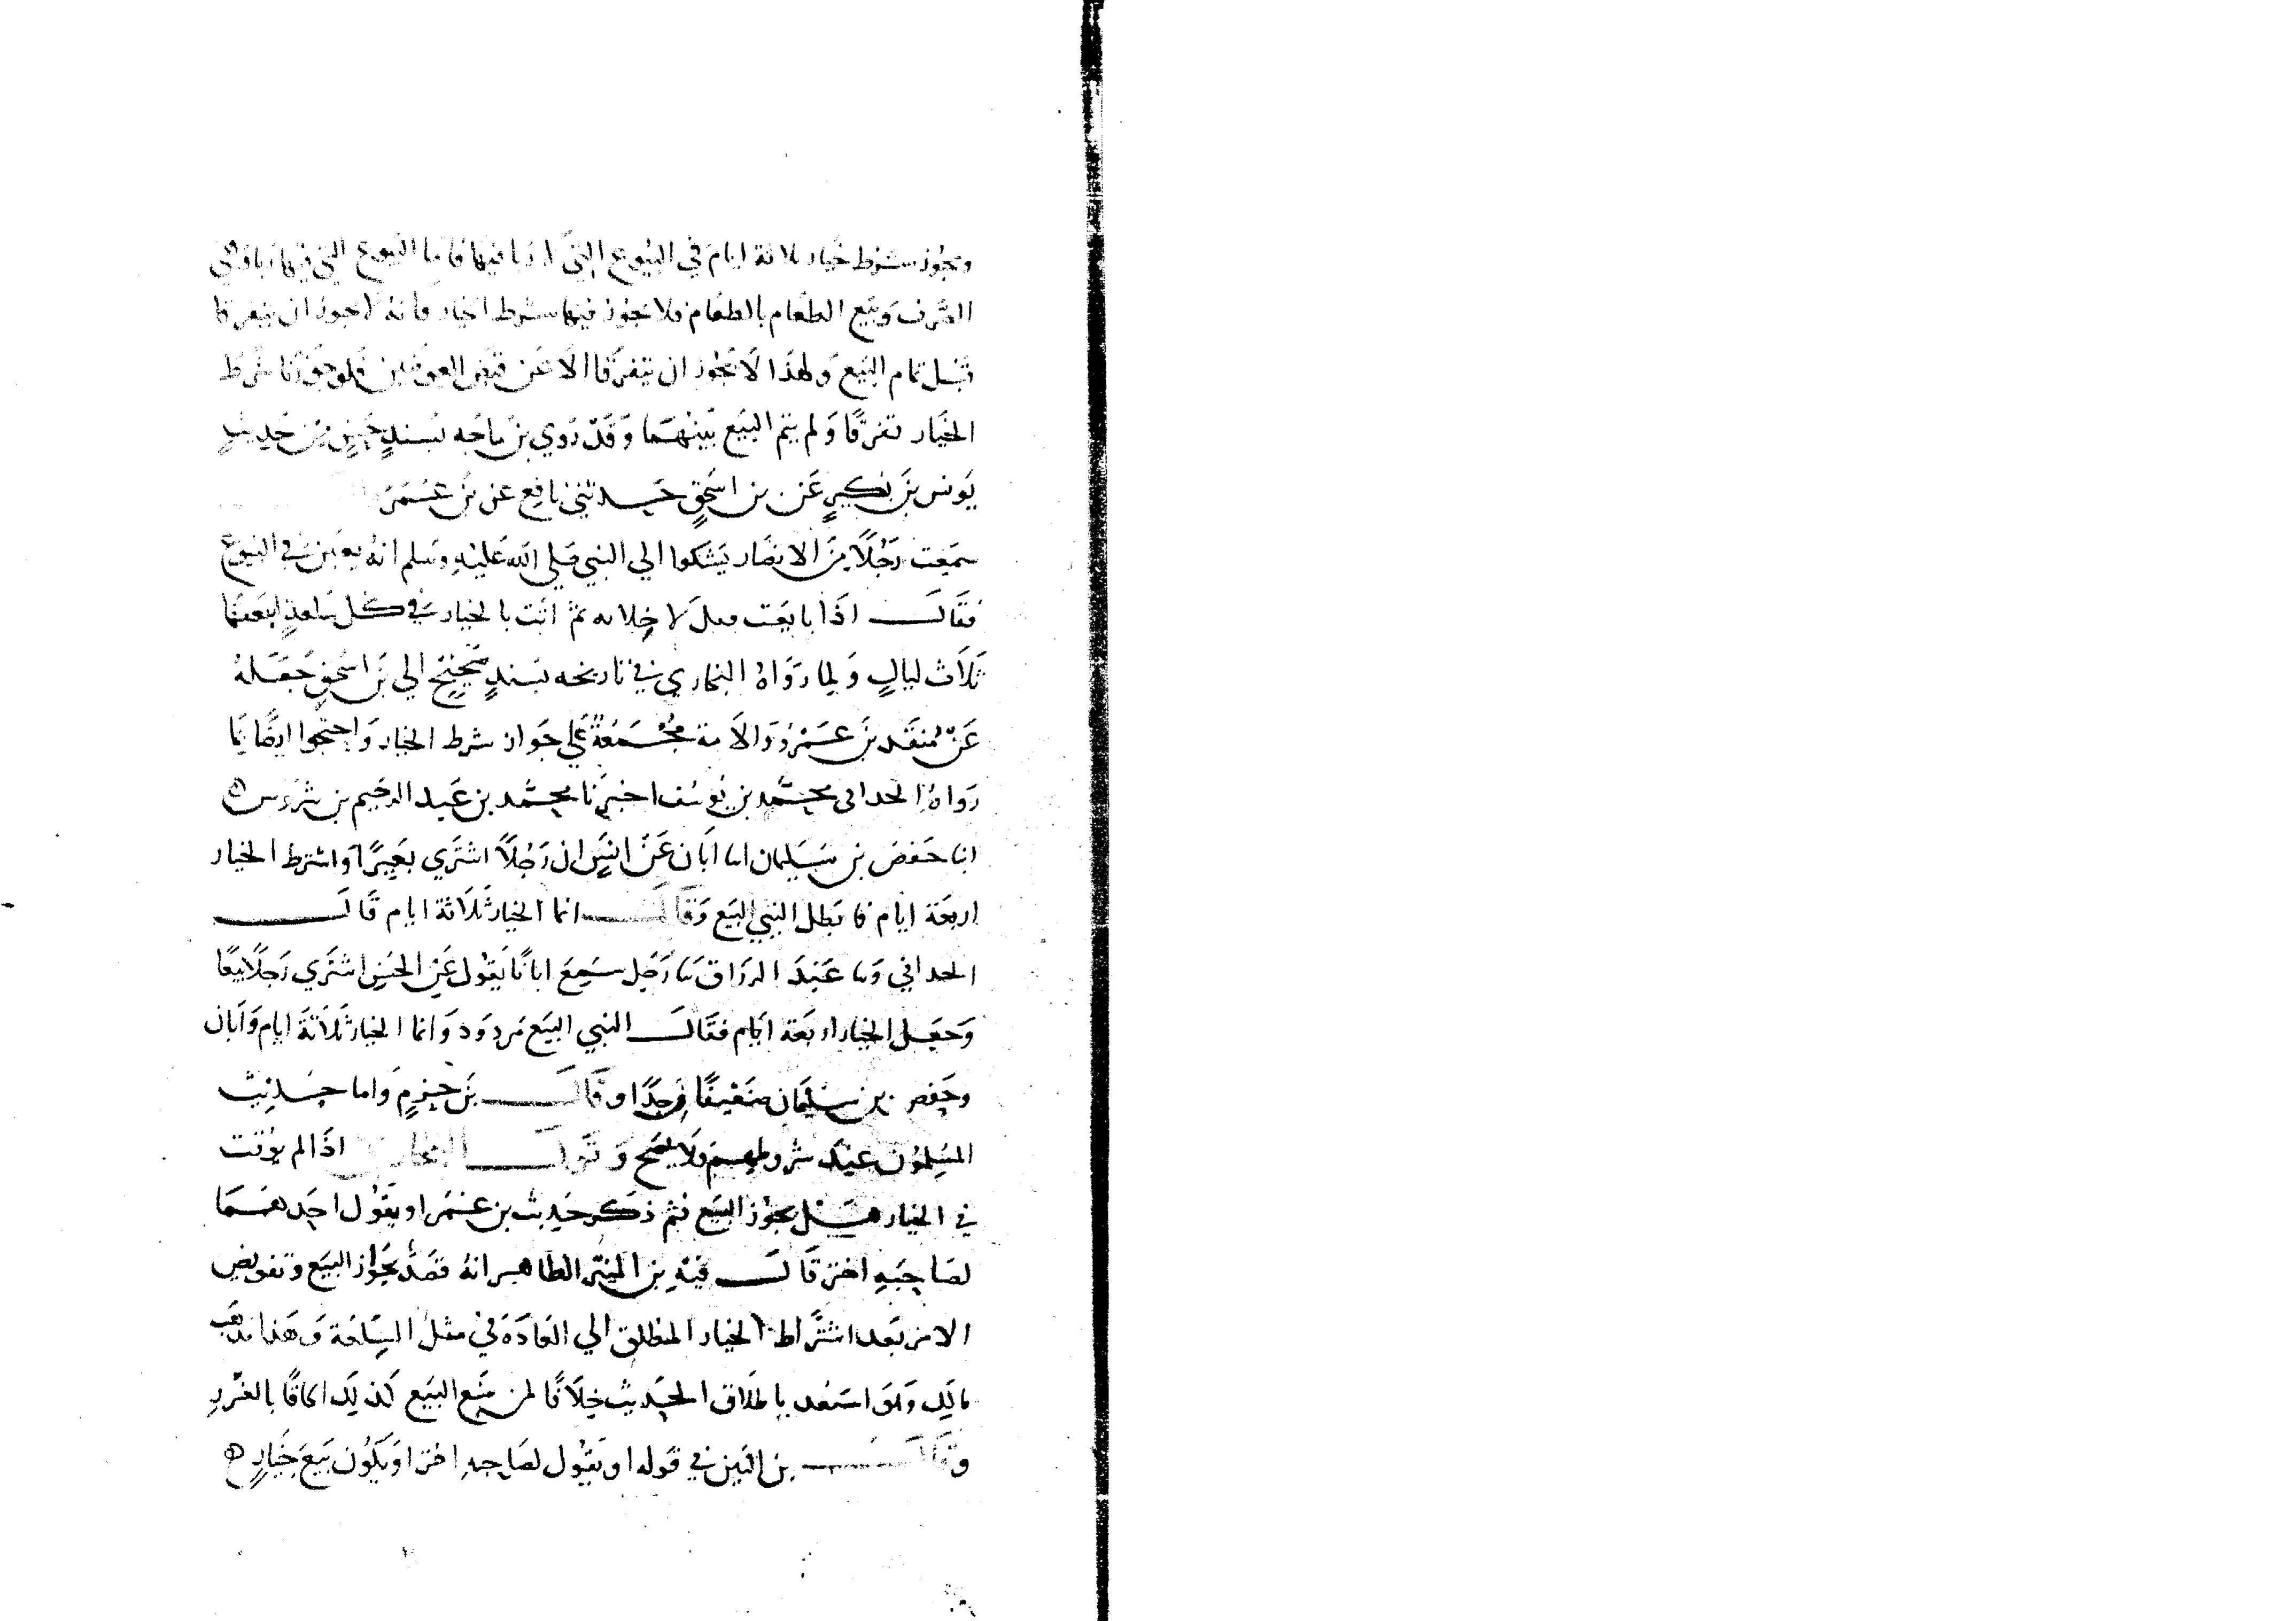 ويجوز شرط خيار ثلاثة ايام في البيوع التي لا ربا فيها فاما البيوع التي فيها ربا وهي
الصرف وبيع الطعام بالطعام فلا يجوز فيها شرط الخيار فانه لا يجوز ان يتفرقا
قبل تمام البيع ولهذا لا يجوز ان يتفرقا الا عن قبض العوضين فلو جوزنا شرط
الخيار تفرقا ولم يتم البيع بينهما وقد روي بن ماجه بسند من حديث
يونس بن بكير عن بن اسحق حدثني نافع عن بن عمر
سمعت رجلا من الانصار يشكوا الي النبي صلي الله عليه وسلم انه يغبن في البيوع
فقال اذا بايعت فقل لا خلابه ثم انت بالخيار في كل سلعة ابتعتها
ثلاث ليال ولما رواه البخاري في تاريخه بسند صحيح الي بن اسحق جعله
عن منقد بن عمرو والامة مجمعة علي جواز شرط الخيار واحتجوا ايضا بما
رواه الحداقي محمد بن يوسف اخبرنا محمد بن عبد الرحيم بن شروس ه
انا حفص بن سليمان انا ابان عن انس ان رجلا اشتري بعيرا واشترط الخيار
اربعة ايام فابطل النبي البيع وقال انما الخيار ثلاثة ايام قال
الحداقي وثنا عبد الرزاق ثنا رجل سمع ابانا يقول عن الحسن اشتري رجل بيعا
وجعل الخيار اربعة ايام فقال النبي البيع مردود وانما الخيار ثلاثة ايام وابان
وحفص بن سليمان ضعيفا جدا وقال بن حزم واما حديث
المسلمون عند شروطهم فلا يصح وقول البخاري اذا لم يوقت
في الخيار هل يجوز البيع فثم ذكر حديث بن عمر او يقول احدهما
لصاحبه اختر قال فيه بن المنير الظاهر انه قصد بجواز البيع وتفويض
الامر بعد اشتراط الخيار المطلق الي العادة في مثل السلعة وهذا مذهب
مالك وهو اسعد باطلاق الحديث خلافا لمن منع البيع كذلك الحاقا بالغرر
وقال بن التين في قوله او يقول لصاحبه اختر او يكون بيع خيار ه